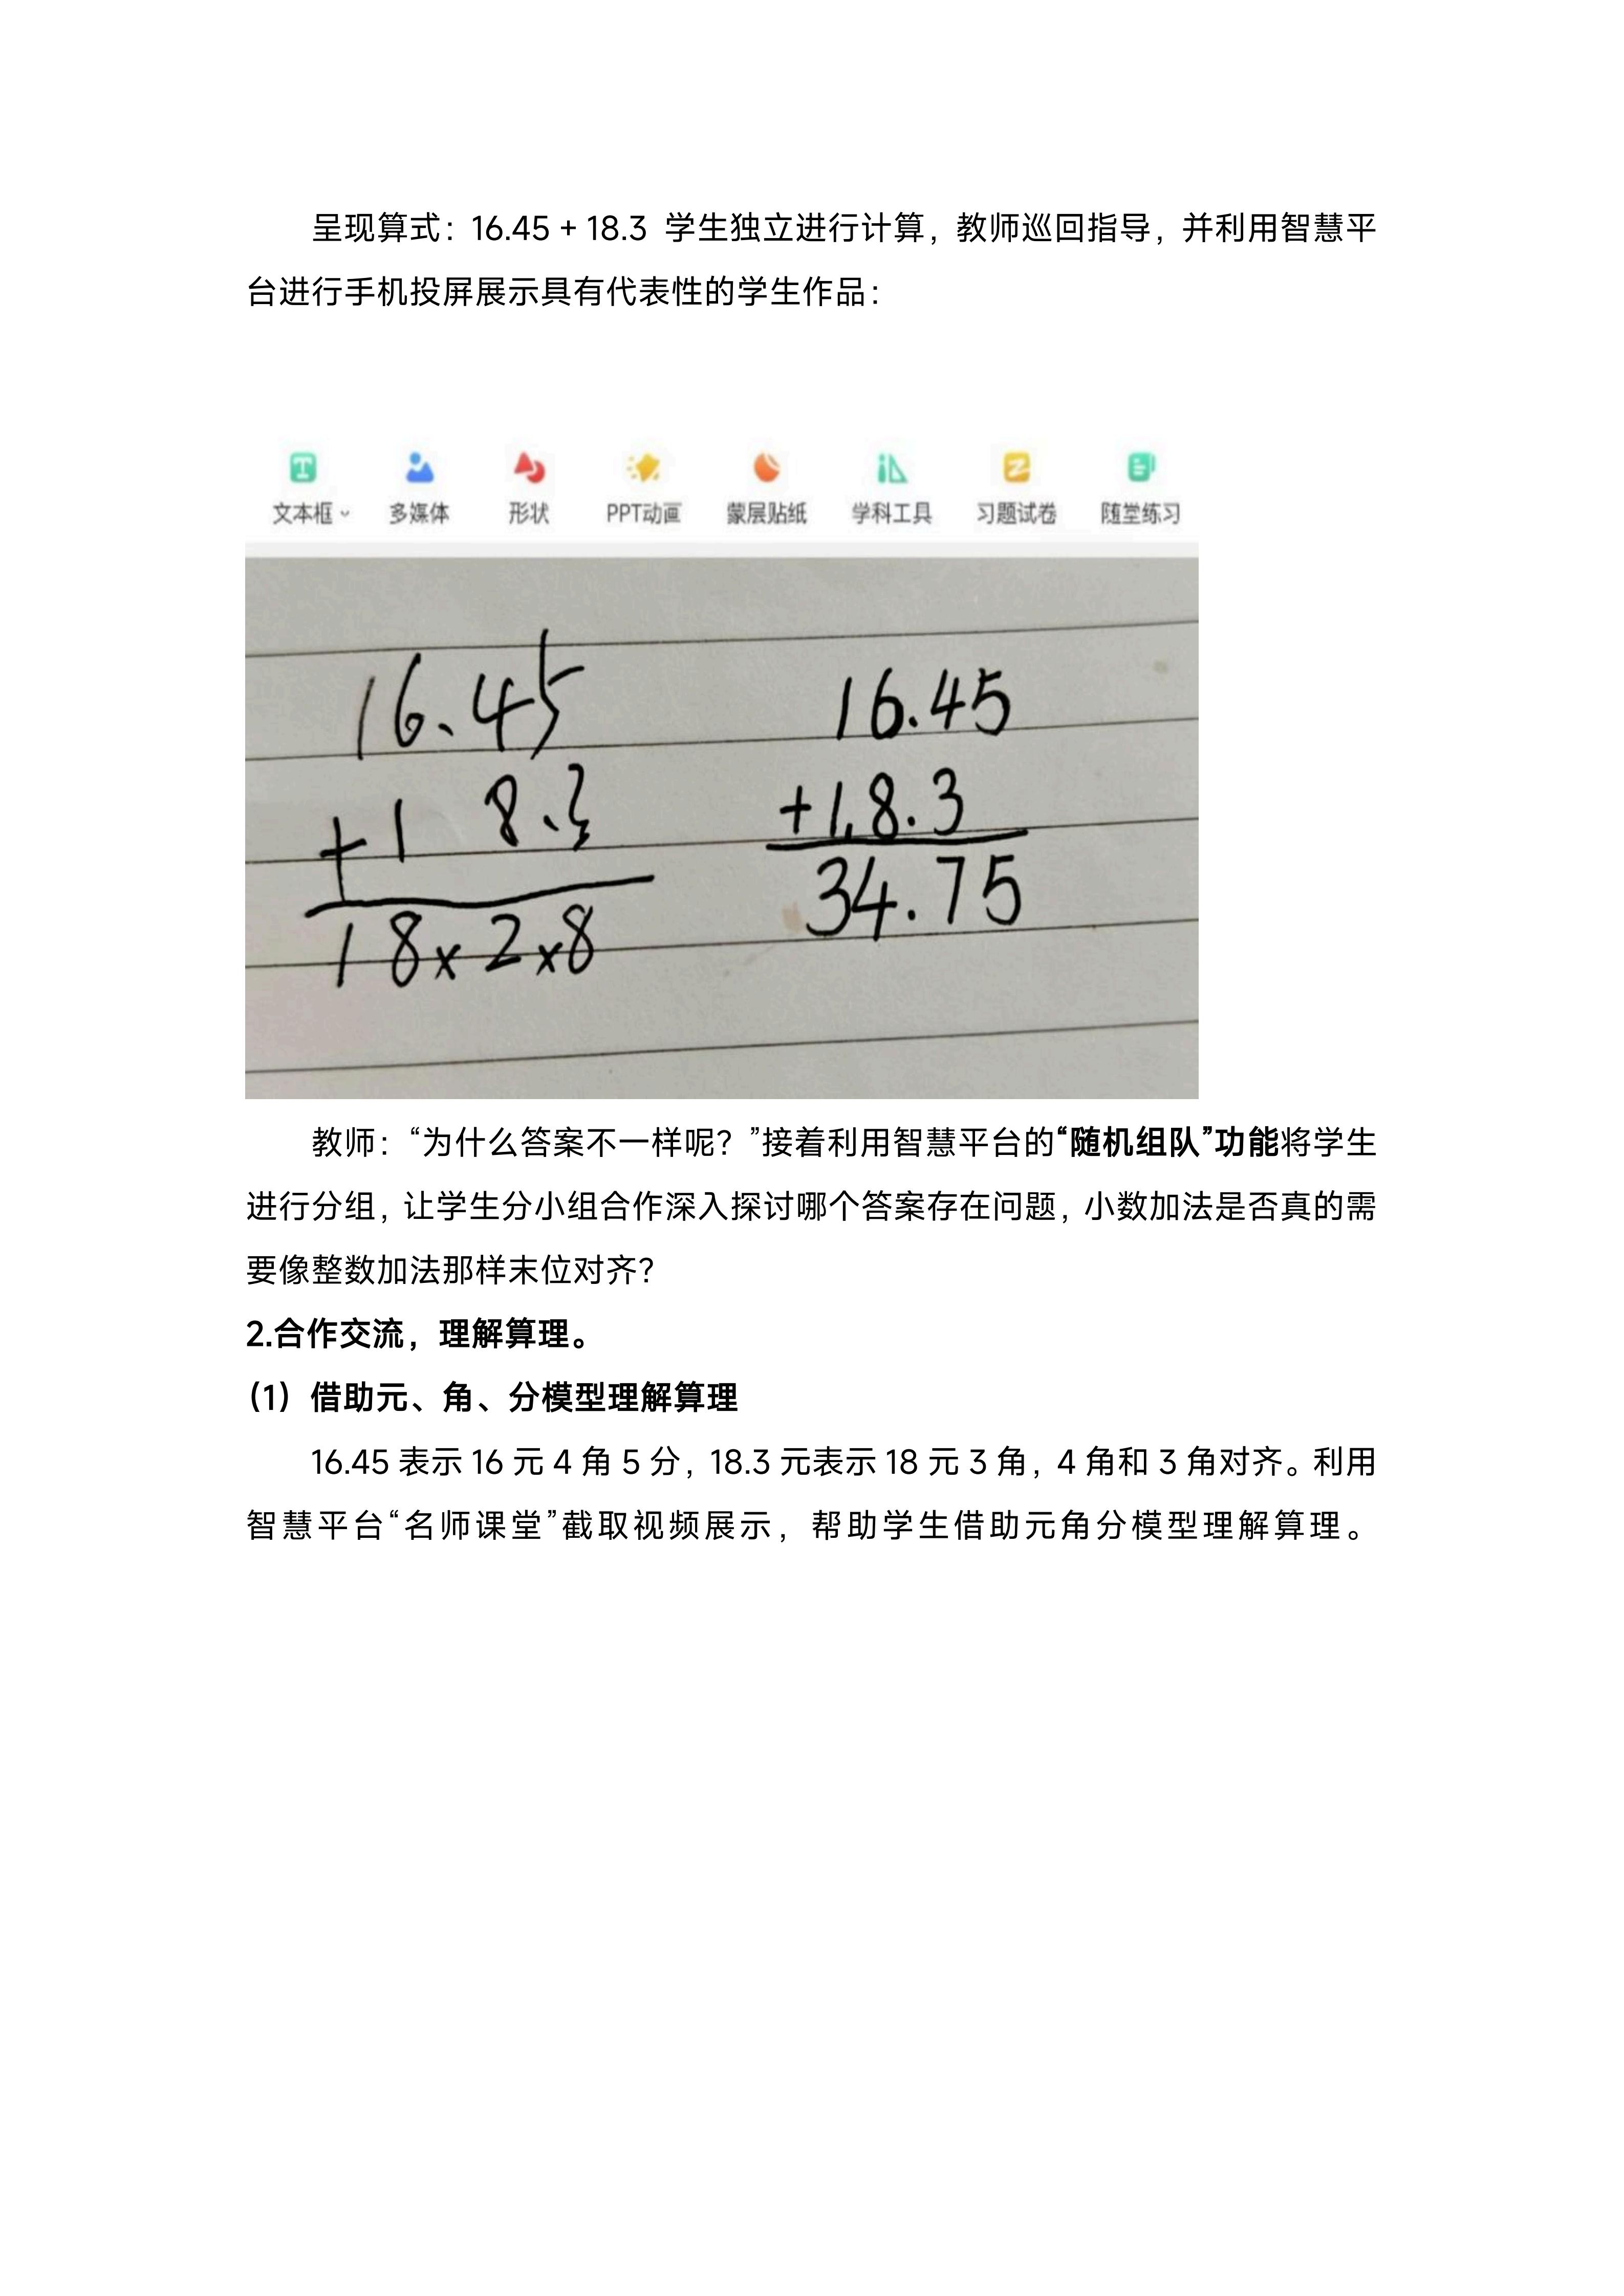 呈现算式：16.45 + 18.3 学生独立进行计算，教师巡回指导，并利用智慧平
台进行手机投屏展示具有代表性的学生作品：
文本框 多媒体 形状 PPT动画 蒙层贴纸 学科工具 习题试卷 随堂练习
16.45 16.45
+1 8.3 +18.3
18x2x8 34.75
教师：“为什么答案不一样呢？”接着利用智慧平台的“随机组队”功能将学生
进行分组，让学生分小组合作深入探讨哪个答案存在问题，小数加法是否真的需
要像整数加法那样末位对齐？
2.合作交流，理解算理。
（1）借助元、角、分模型理解算理
16.45 表示 16 元 4 角 5 分，18.3 元表示 18 元 3 角，4 角和 3 角对齐。利用
智慧平台“名师课堂”截取视频展示，帮助学生借助元角分模型理解算理。